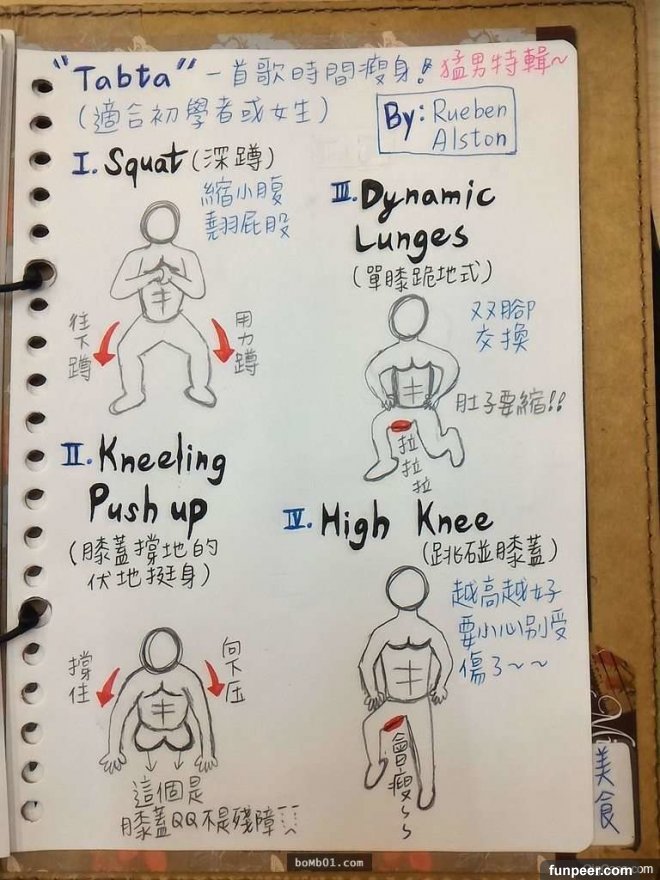 "Tabta" 一首歌時間瘦身! 猛男特輯~
(適合初學者或女生)
By: Rueben
Alston
I. Squat (深蹲)
縮小腹
翹屁股
往下蹲
用力蹲
II. Kneeling
Push up
(膝蓋撐地的
伏地挺身)
撐住
向下压
這個是
膝蓋QQ不是殘障
III. Dynamic
Lunges
(單膝跪地式)
双双腳
交換
肚子要縮!!
拉
拉
拉
IV. High Knee
(跳碰膝蓋)
越高越好
要小心別受
傷了~~
會瘦~~
美食
boMb01.com
funpeer.com